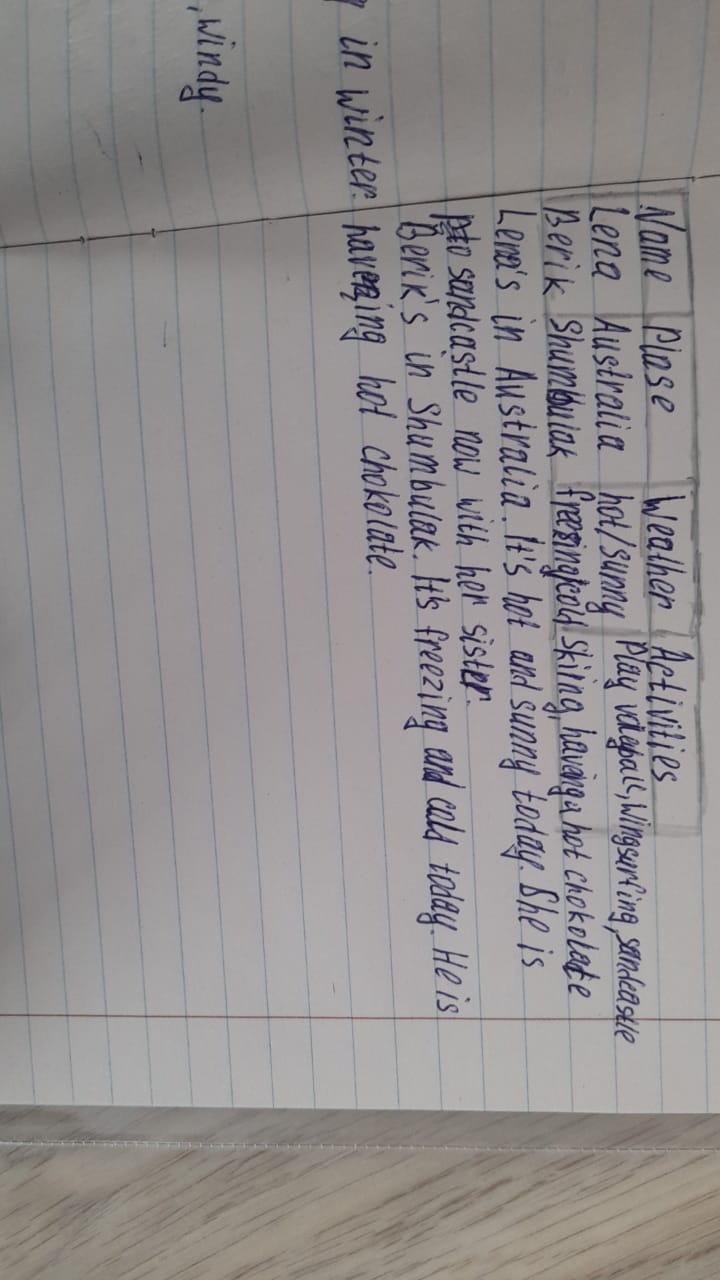 Name Plase Weather Activities
Lena Australia hot/sunny Play voleyball, wingsurfing, sandcastle
Berik Shumbulak freezing/cold Skiing, having a hot chokolate
Lena's in Australia. It's hot and sunny today. She is
sandcastle now with her sister.
Berik's in Shumbulak. It's freezing and cold today. He is
having hot chokolate.
in winter.
, windy.